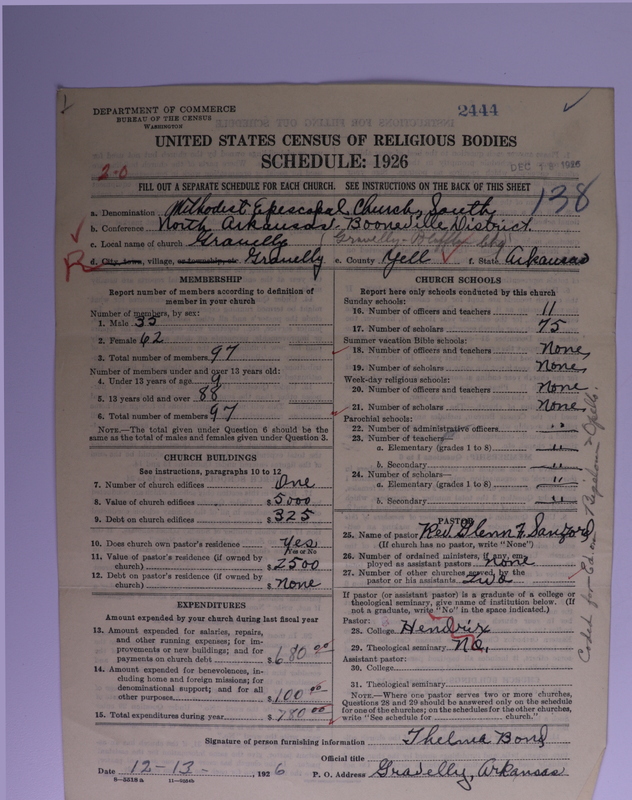 DEPARTMENT OF COMMERCE
BUREAU OF THE CENSUS
WASHINGTON
2444
UNITED STATES CENSUS OF RELIGIOUS BODIES
SCHEDULE: 1926
2-0
DEC 1926
FILL OUT A SEPARATE SCHEDULE FOR EACH CHURCH. SEE INSTRUCTIONS ON THE BACK OF THIS SHEET
138
a. Denomination Methodist Episcopal Church, South
b. Conference North Arkansas, Booneville District
c. Local name of church Gravelly (Gravelly-Bluffton Chg)
d. City, town, village, or township, etc Gravelly e. County Yell f. State Arkansas
R
MEMBERSHIP
Report number of members according to definition of member in your church
Number of members, by sex:
1. Male 35
2. Female 62
3. Total number of members 97
Number of members under and over 13 years old:
4. Under 13 years of age 9
5. 13 years old and over 88
6. Total number of members 97
NOTE.—The total given under Question 6 should be the same as the total of males and females given under Question 3.
CHURCH BUILDINGS
See instructions, paragraphs 10 to 12
7. Number of church edifices One
8. Value of church edifices $ 5000
9. Debt on church edifices $ 325
10. Does church own pastor's residence Yes
Yes or No
11. Value of pastor's residence (if owned by church) $ 2500
12. Debt on pastor's residence (if owned by church) $ None
EXPENDITURES
Amount expended by your church during last fiscal year
13. Amount expended for salaries, repairs, and other running expenses; for improvements or new buildings; and for payments on church debt $ 680 00
14. Amount expended for benevolences, including home and foreign missions; for denominational support; and for all other purposes $ 100 00
15. Total expenditures during year $ 780 00
CHURCH SCHOOLS
Report here only schools conducted by this church
Sunday schools:
16. Number of officers and teachers 11
17. Number of scholars 75
Summer vacation Bible schools:
18. Number of officers and teachers None
19. Number of scholars None
Week-day religious schools:
20. Number of officers and teachers None
21. Number of scholars None
Parochial schools:
22. Number of administrative officers "
23. Number of teachers
a. Elementary (grades 1 to 8) "
b. Secondary "
24. Number of scholars—
a. Elementary (grades 1 to 8) "
b. Secondary "
PASTOR
25. Name of pastor Rev. Glenn F. Sanford
(If church has no pastor, write "None")
26. Number of ordained ministers, if any, employed as assistant pastors None
27. Number of other churches served by the pastor or his assistants Two
If pastor (or assistant pastor) is a graduate of a college or theological seminary, give name of institution below. (If not a graduate, write "No" in the space indicated.)
Pastor:
28. College Hendrix
29. Theological seminary No.
Assistant pastor:
30. College
31. Theological seminary
NOTE.—Where one pastor serves two or more churches, Questions 28 and 29 should be answered only on the schedule for one of the churches; on the schedules for the other churches, write "See schedule for church."
Coded for Ed on
Signature of person furnishing information Thelma Bond
Official title
Date 12-13-, 1926 P. O. Address Gravelly, Arkansas